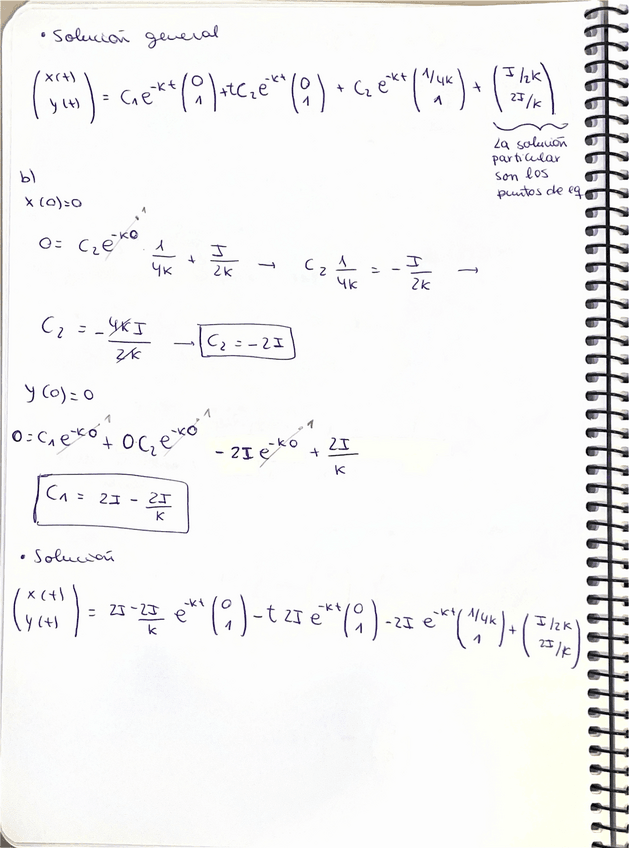 • Solución general
(x(t) y(t)) = C₁e^-kt (0 1) + tC₂e^-kt (0 1) + C₂e^-kt (1/4k 1) + (I/2k 2I/k)
La solución
particular
son los
puntos de eq
b)
x(0)=0
0 = C₂e^-k0 1 1/4k + I/2k → C₂ 1/4k = - I/2k →
C₂ = - 4kI/2k → C₂ = -2I
y(0)=0
0 = C₁e^-k0 1 + 0C₂e^-k0 1 - 2Ie^-k0 1 + 2I/k
C₁ = 2I - 2I/k
• Solución
(x(t) y(t)) = 2I-2I/k e^-kt (0 1) - t 2I e^-kt (0 1) - 2I e^-kt (1/4k 1) + (I/2k 2I/k)